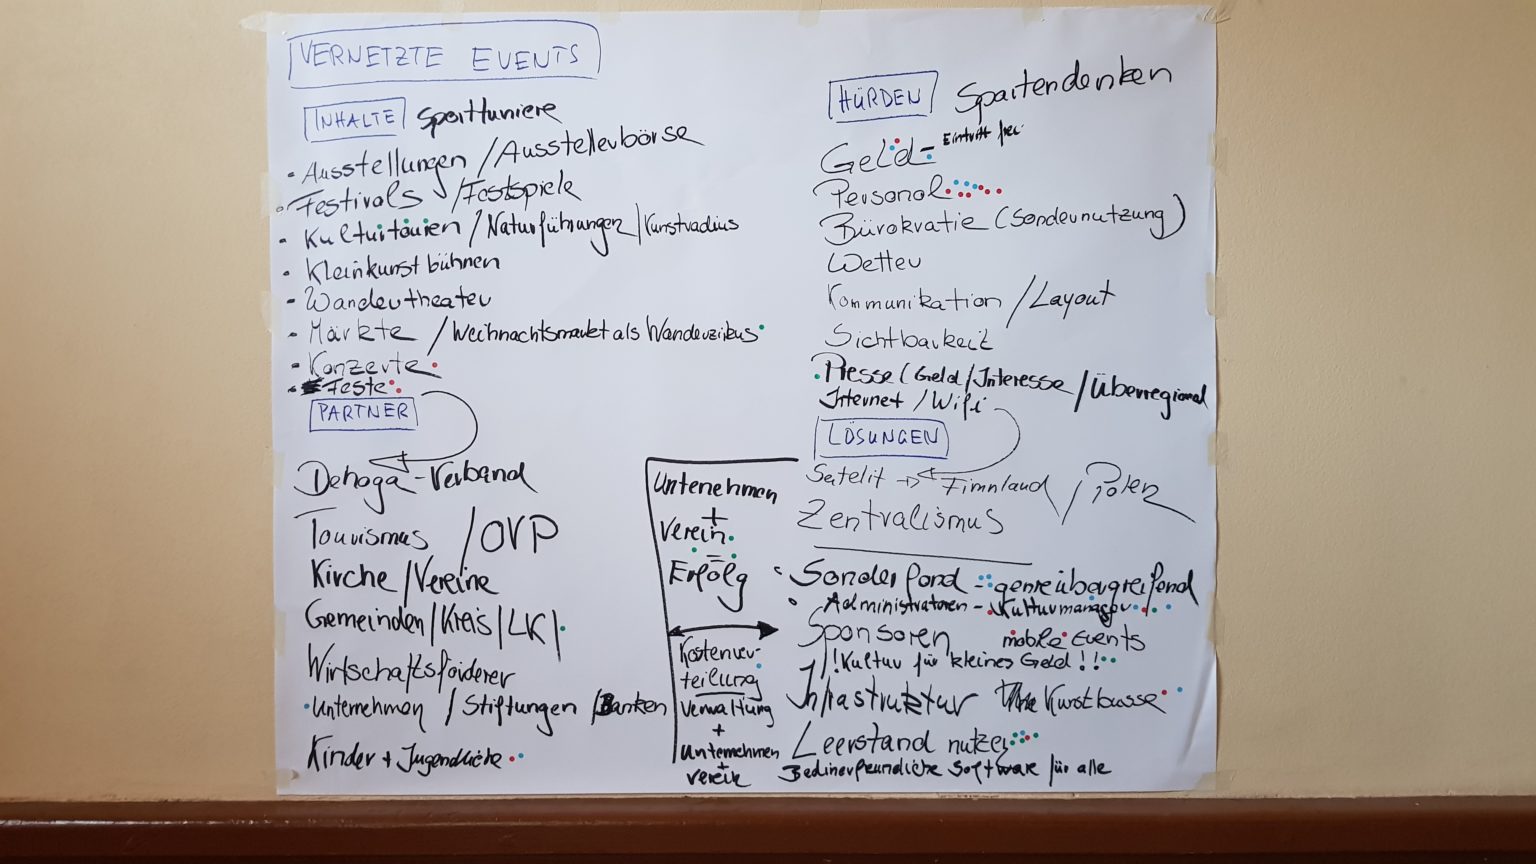 VERNETZTE EVENTS
INHALTE Sporttuniere
• Ausstellungen / Ausstellerbörse
• Festivals / Festspiele
• Kulturtouren / Naturführungen / Kunstradius
• Kleinkunstbühnen
• Wandertheater
• Märkte / Weihnachtsmarkt als Wanderzirkus
• Konzerte
• Feste
PARTNER
Dehoga-Verband
Tourismus / OVP
Kirche / Vereine
Gemeinden / Kreis / LK /
Wirtschaftsförderer
Unternehmen / Stiftungen / Banken
Kinder + Jugendliche
Unternehmen
+
Verein
=
Erfolg
Kostenver-
teilung
Verwaltung
+
Unternehmen
+
Verein
HÜRDEN Spartendenken
Geld - Eintritt frei
Personal
Bürokratie (Sondernutzung)
Wetter
Kommunikation / Layout
Sichtbarkeit
Presse (Geld / Interesse / Überregional
Internet / Wifi
LÖSUNGEN
Satelit → Finnland / Polen
Zentralismus
• Sonderfond - genreübergreifend
• Administratoren - Kulturmanager
Sponsoren mobile Events
! Kultur für kleines Geld !!
Infrastruktur Kunstbusse
Leerstand nutzen
Software für alle